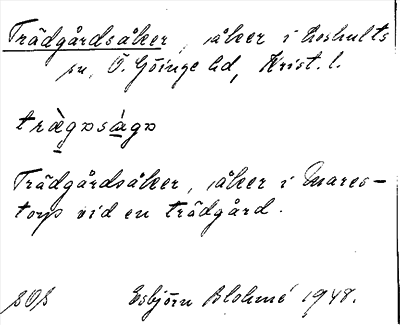 Trädgårdsåker, åker i Loshults
sn, Ö. Göinge hd, Krist. l.
Trädgårdsåker, åker i Mares-
torp vid en trädgård.
Esbjörn Blohmé 1948.